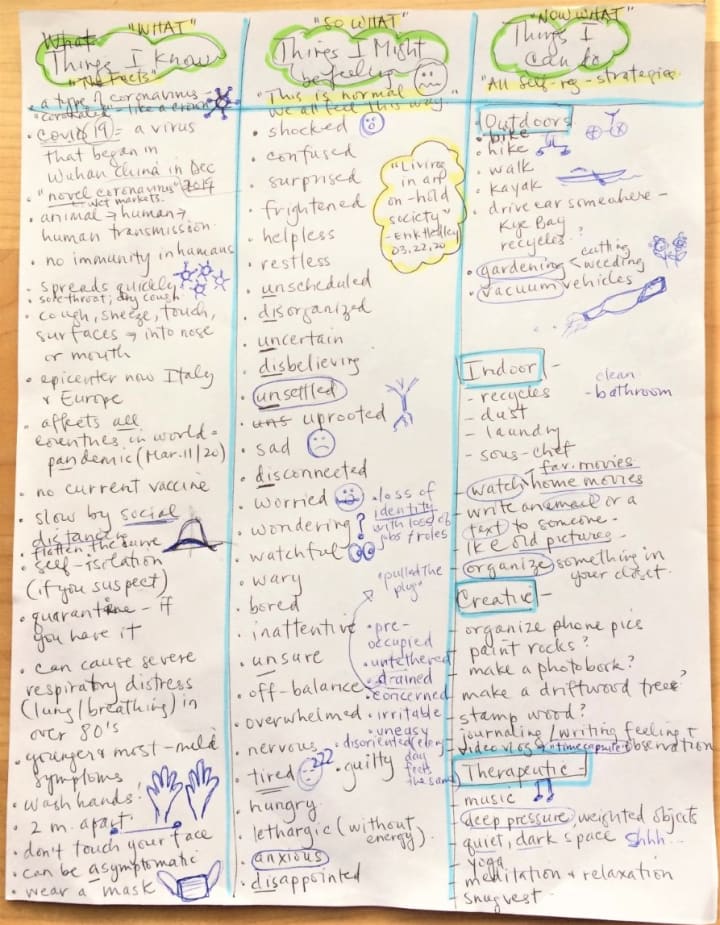 What "WHAT"
Things I Know
"The Facts"
- a type of coronavirus -
"corona" - like a crown
• COVID 19 = a virus
that began in
Wuhan China in Dec
2019
• "novel coronavirus"
wet markets
• animal → human →
human transmission
• no immunity in humans
• spreads quickly
• sore throat, dry cough
• cough, sneeze, touch,
surfaces → into nose
or mouth
• epicenter now Italy
& Europe
• affects all
countries in world =
pandemic (Mar. 11/20)
• no current vaccine
• slow by social
distance
• flatten the curve
• self-isolation
(if you suspect)
• quarantine - if
you have it
• can cause severe
respiratory distress
(lung/breathing) in
over 80's
• younger & most - mild
symptoms
• wash hands!
• 2 m. apart
• don't touch your face
• can be asymptomatic
• wear a mask
"SO WHAT"
Things I Might
be feeling
"This is normal
We all feel this way"
• shocked
• confused
• surprised
• frightened
• helpless
• restless
• unscheduled
• disorganized
• uncertain
• disbelieving
• unsettled
• uns uprooted
• sad
• disconnected
• worried
• wondering ?
• watchful
• wary
• bored
• inattentive
• unsure
• off-balance
• overwhelmed
• nervous
• tired zzz
• hungry
• lethargic (without
energy)
• anxious
• disappointed
"Living
in an
on-hold
society"
03.22.20
• loss of
identity
with loss of
jobs/roles
"pulled the
plug"
• pre-
occupied
• untethered
• drained
• concerned
• irritable
• uneasy
• disoriented (every
day
feels
the same)
• guilty
"NOW WHAT"
Things I
can do
"All self-reg-strategies
Outdoors
• bike
• hike
• walk
• kayak
• drive car somewhere -
Kye Bay
recycles?
• gardening < cutting
weeding
• vacuum vehicles
Indoor -
- recycles
- dust
- laundry
- sous-chef
clean
- bathroom
fav. movies
- watch home movies
- write an email or a
text to someone
- old pictures -
- organize something in
your closet
Creative -
- organize phone pics
- paint rocks?
- make a photobook?
- make a driftwood tree?
- stamp wood?
- journaling/writing feeling &
- video vlog "timecapsule" observation
Therapeutic -
- music
- deep pressure weighted objects
- quiet, dark space Shhh...
- yoga
- meditation & relaxation
- snug vest